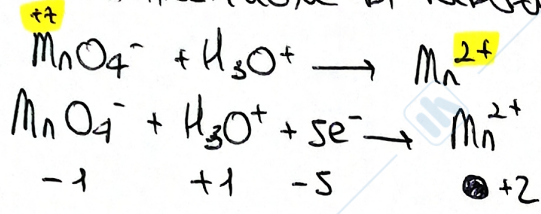 +7
MnO₄⁻ + H₃O⁺ ⟶ Mn²⁺
MnO₄⁻ + H₃O⁺ + 5e⁻ ⟶ Mn²⁺
-1 +1 -5 +2